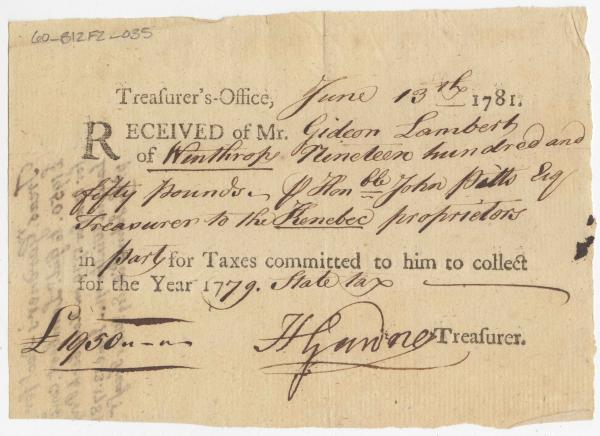 60-812FZ-035
Treasurer's-Office, June 13th 1781.
RECEIVED of Mr. Gideon Lambert
of Winthrop Nineteen hundred and
fifty pounds ₽ Honble John Pitts Esq
Treasurer to the Kenebec proprietors
in part for Taxes committed to him to collect
for the Year 1779. State tax
£1950 H Gardner Treasurer.